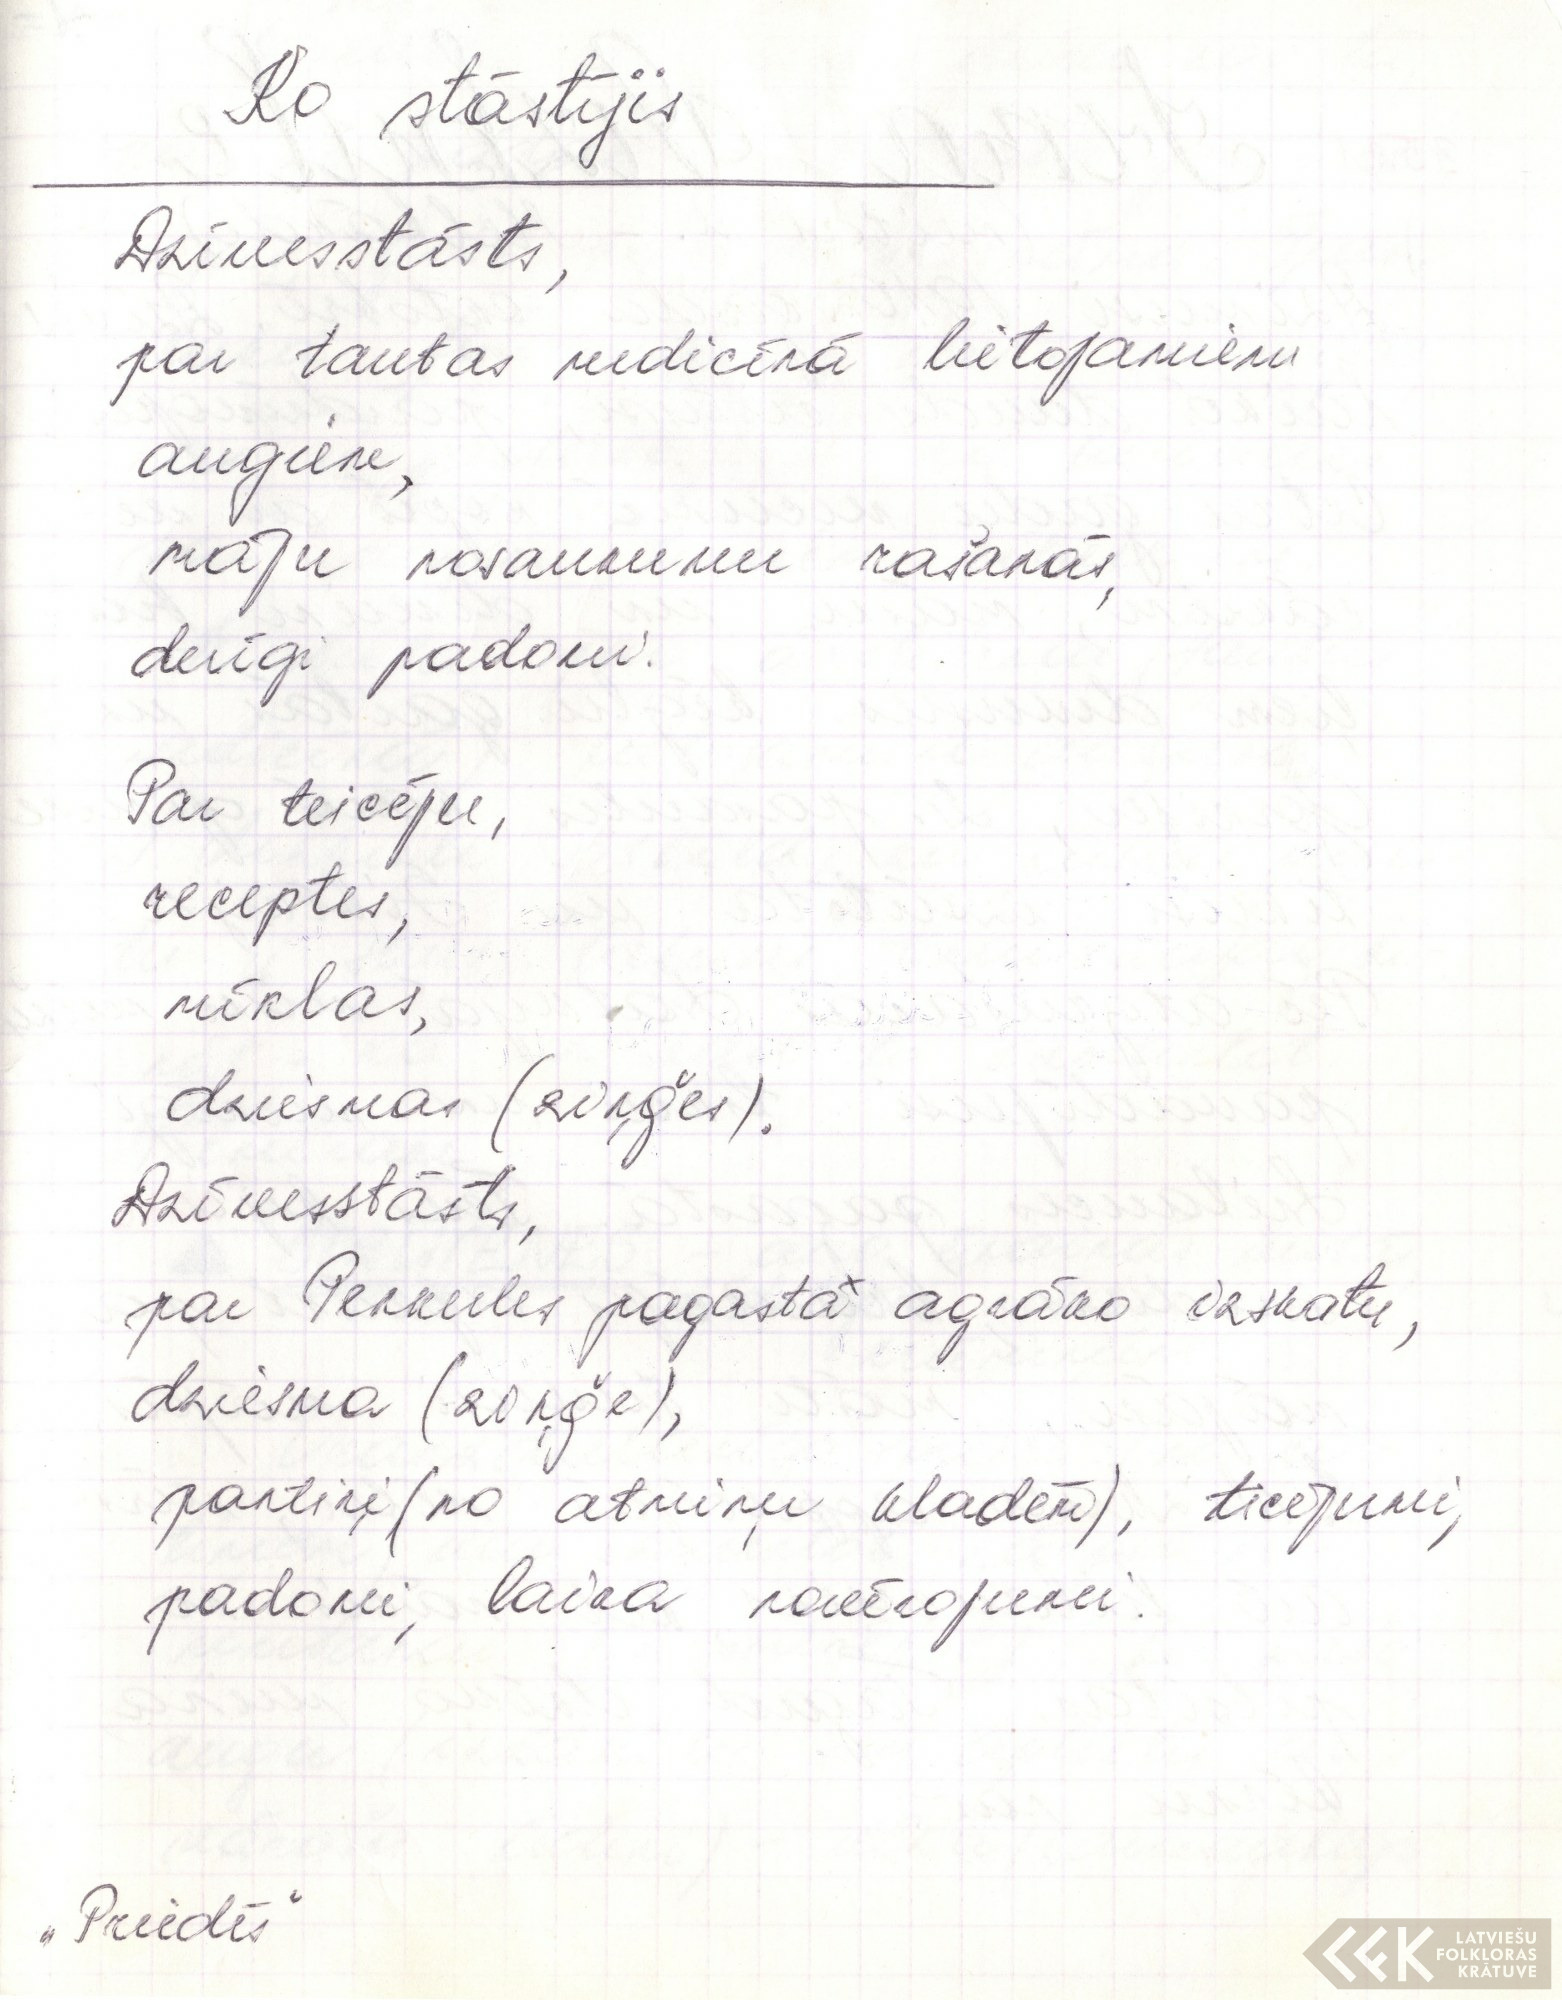 Ko stāstījis
Dzīvesstāsts,
par tautas medicīnā lietojamiem
augiem,
māju nosaukumu rašanās,
derīgi padomi.
Par teicēju,
receptes,
mīklas,
dziesmas (ziņģes).
Dzīvesstāsts,
par Penkules pagasta agrāko izskatu,
dziesma (ziņģe),
pantiņi (no atmiņu kladēm), ticējumi,
padomi, laika novērojumi.
"Priedēs"
LATVIEŠU
FOLKLORAS
KRĀTUVE